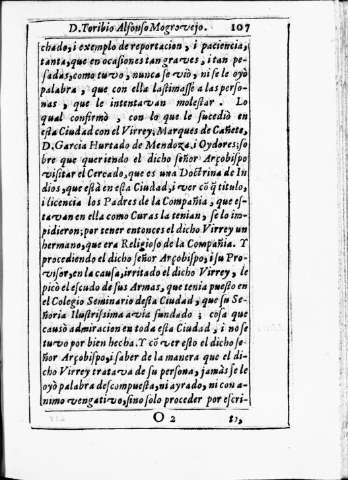 D. Toribio Alfonso Mogrovejo. 107
chado, i exemplo de reportacion, i paciencia,
tanta, que en ocasiones tan graves, i tan pe-
sadas, como tuvo, nunca se viò, ni se le oyò
palabra, que con ella lastimasse a las perso-
nas, que le intentavan molestar. Lo
qual confirmò, con lo que le sucediò en
esta Ciudad con el Virrey, Marques de Cañete,
D. Garcia Hurtado de Mendoza, i Oydores; so
bre que queriendo el dicho señor Arçobispo
visitar el Cercado, que es una Doctrina de In
dios, que està en esta Ciudad, i ver cõ q̃ titulo,
i licencia los Padres de la Compañia, que es-
tavan en ella como Curas la tenian, se lo im-
pidieron; por tener entonces el dicho Virrey un
hermano, que era Religioso de la Compañia. Y
procediendo el dicho señor Arçobispo, i su Pro-
visor, en la causa, irritado el dicho Virrey, le
picò el escudo de sus Armas, que tenia puesto en
el Colegio Seminario desta Ciudad, que su Se-
ñoria Ilustrissima avia fundado; cosa que
causò admiracion en toda esta Ciudad, i no se
tuvo por bien hecha. Y cõ ver esto el dicho se-
ñor Arçobispo, i saber de la manera que el di-
cho Virrey tratava de su persona, jamàs se le
oyò palabra descompuesta, ni ayrado, ni con a-
nimo vengativo, sino solo proceder por escri-
O 2